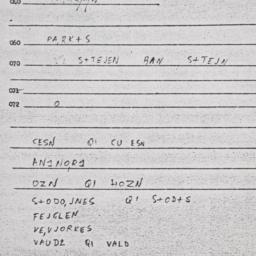 060 PARK+S
070 S+TEJEN BAN S+TEJN
071
072 0
CESN QI CU ESN
AN1NOR1
OZN QI HOZN
S+ODO,JNES QI S+OD+S
FEJGLEN
VE,VJORKES
VAUD2 QI VALD